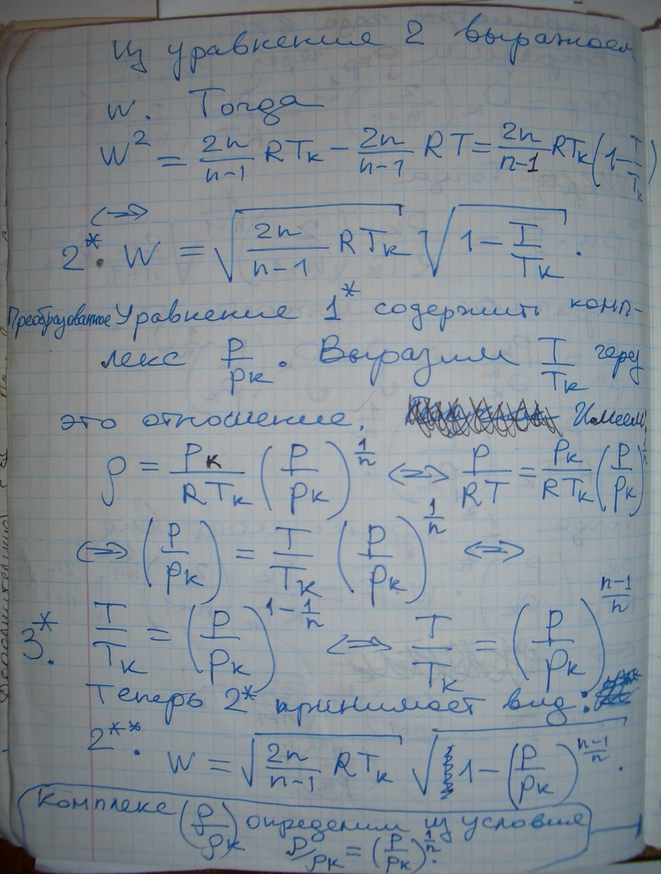 Из уравнения 2 выражаем
w. Тогда
W² = 2n/(n-1) RTк − 2n/(n-1) RT = 2n/(n-1) RTк (1 − T/Tк)
<=>
2*. W = √(2n/(n-1) RTк) √(1 − T/Tк).
Преобразованное Уравнение 1* содержит комп-
лекс P/Pк. Выразим T/Tк через
это отношение. Имеем
ρ = Pк/(RTк) (P/Pк)^(1/n) <=> P/(RT) = Pк/(RTк) (P/Pк)^(1/n)
<=> (P/Pк) = T/Tк (P/Pк)^(1/n) <=>
3*. T/Tк = (P/Pк)^(1−1/n) <=> T/Tк = (P/Pк)^((n-1)/n)
Теперь 2* принимает вид:
2**. W = √(2n/(n-1) RTк) √(1 − (P/Pк)^((n-1)/n)).
Комплекс (ρ/ρк) определим из условия
ρ/ρк = (P/Pк)^(1/n).